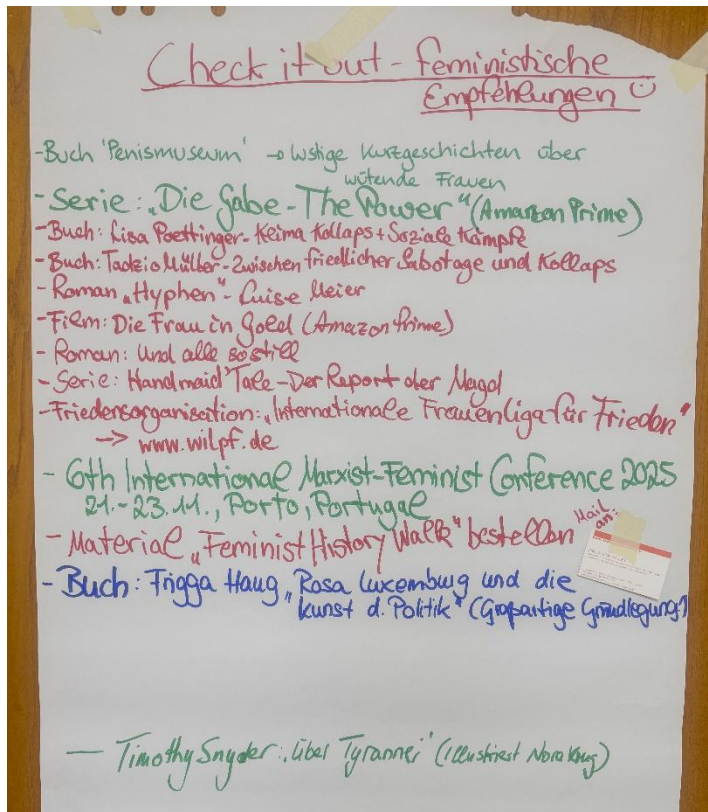 Check it out - feministische
Empfehlungen
- Buch 'Penismuseum' → lustige Kurzgeschichten über
wütende Frauen
- Serie: „Die Gabe - The Power" (Amazon Prime)
- Buch: Lisa Poettinger - Klima Kollaps + Soziale Kämpfe
- Buch: Tadzio Müller - Zwischen friedlicher Sabotage und Kollaps
- Roman „Hyphen" - Luise Meier
- Film: Die Frau in Gold (Amazon Prime)
- Roman: Und alle so still
- Serie: Handmaid' Tale - Der Report der Magd
- Friedensorganisation: „Internationale Frauenliga für Frieden"
→ www.wilpf.de
- 6th International Marxist-Feminist Conference 2025
21.-23.11., Porto, Portugal
- Material „Feminist History Walk" bestellen Mail
an:
- Buch: Frigga Haug „Rosa Luxemburg und die
Kunst d. Politik" (Großartige Grundlegung!)
— Timothy Snyder: „Über Tyrannei" (illustriert Nora Krug)